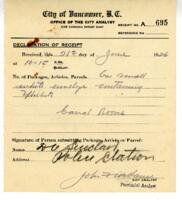 City of Vancouver, B. C.
OFFICE OF THE CITY ANALYST
RECEIPT No. A 695
DECLARATION OF RECEIPT
Received this 21st day of June 1926
at 10-15
No. of Packages, Articles, Parcels. One small
sealed envelope containing
Canal Rooms
Signature of Person submitting Package, Article or Parcel:
Name D. C. Sinclair
Address Police Station
CITY ANALYST
Provincial Analyst